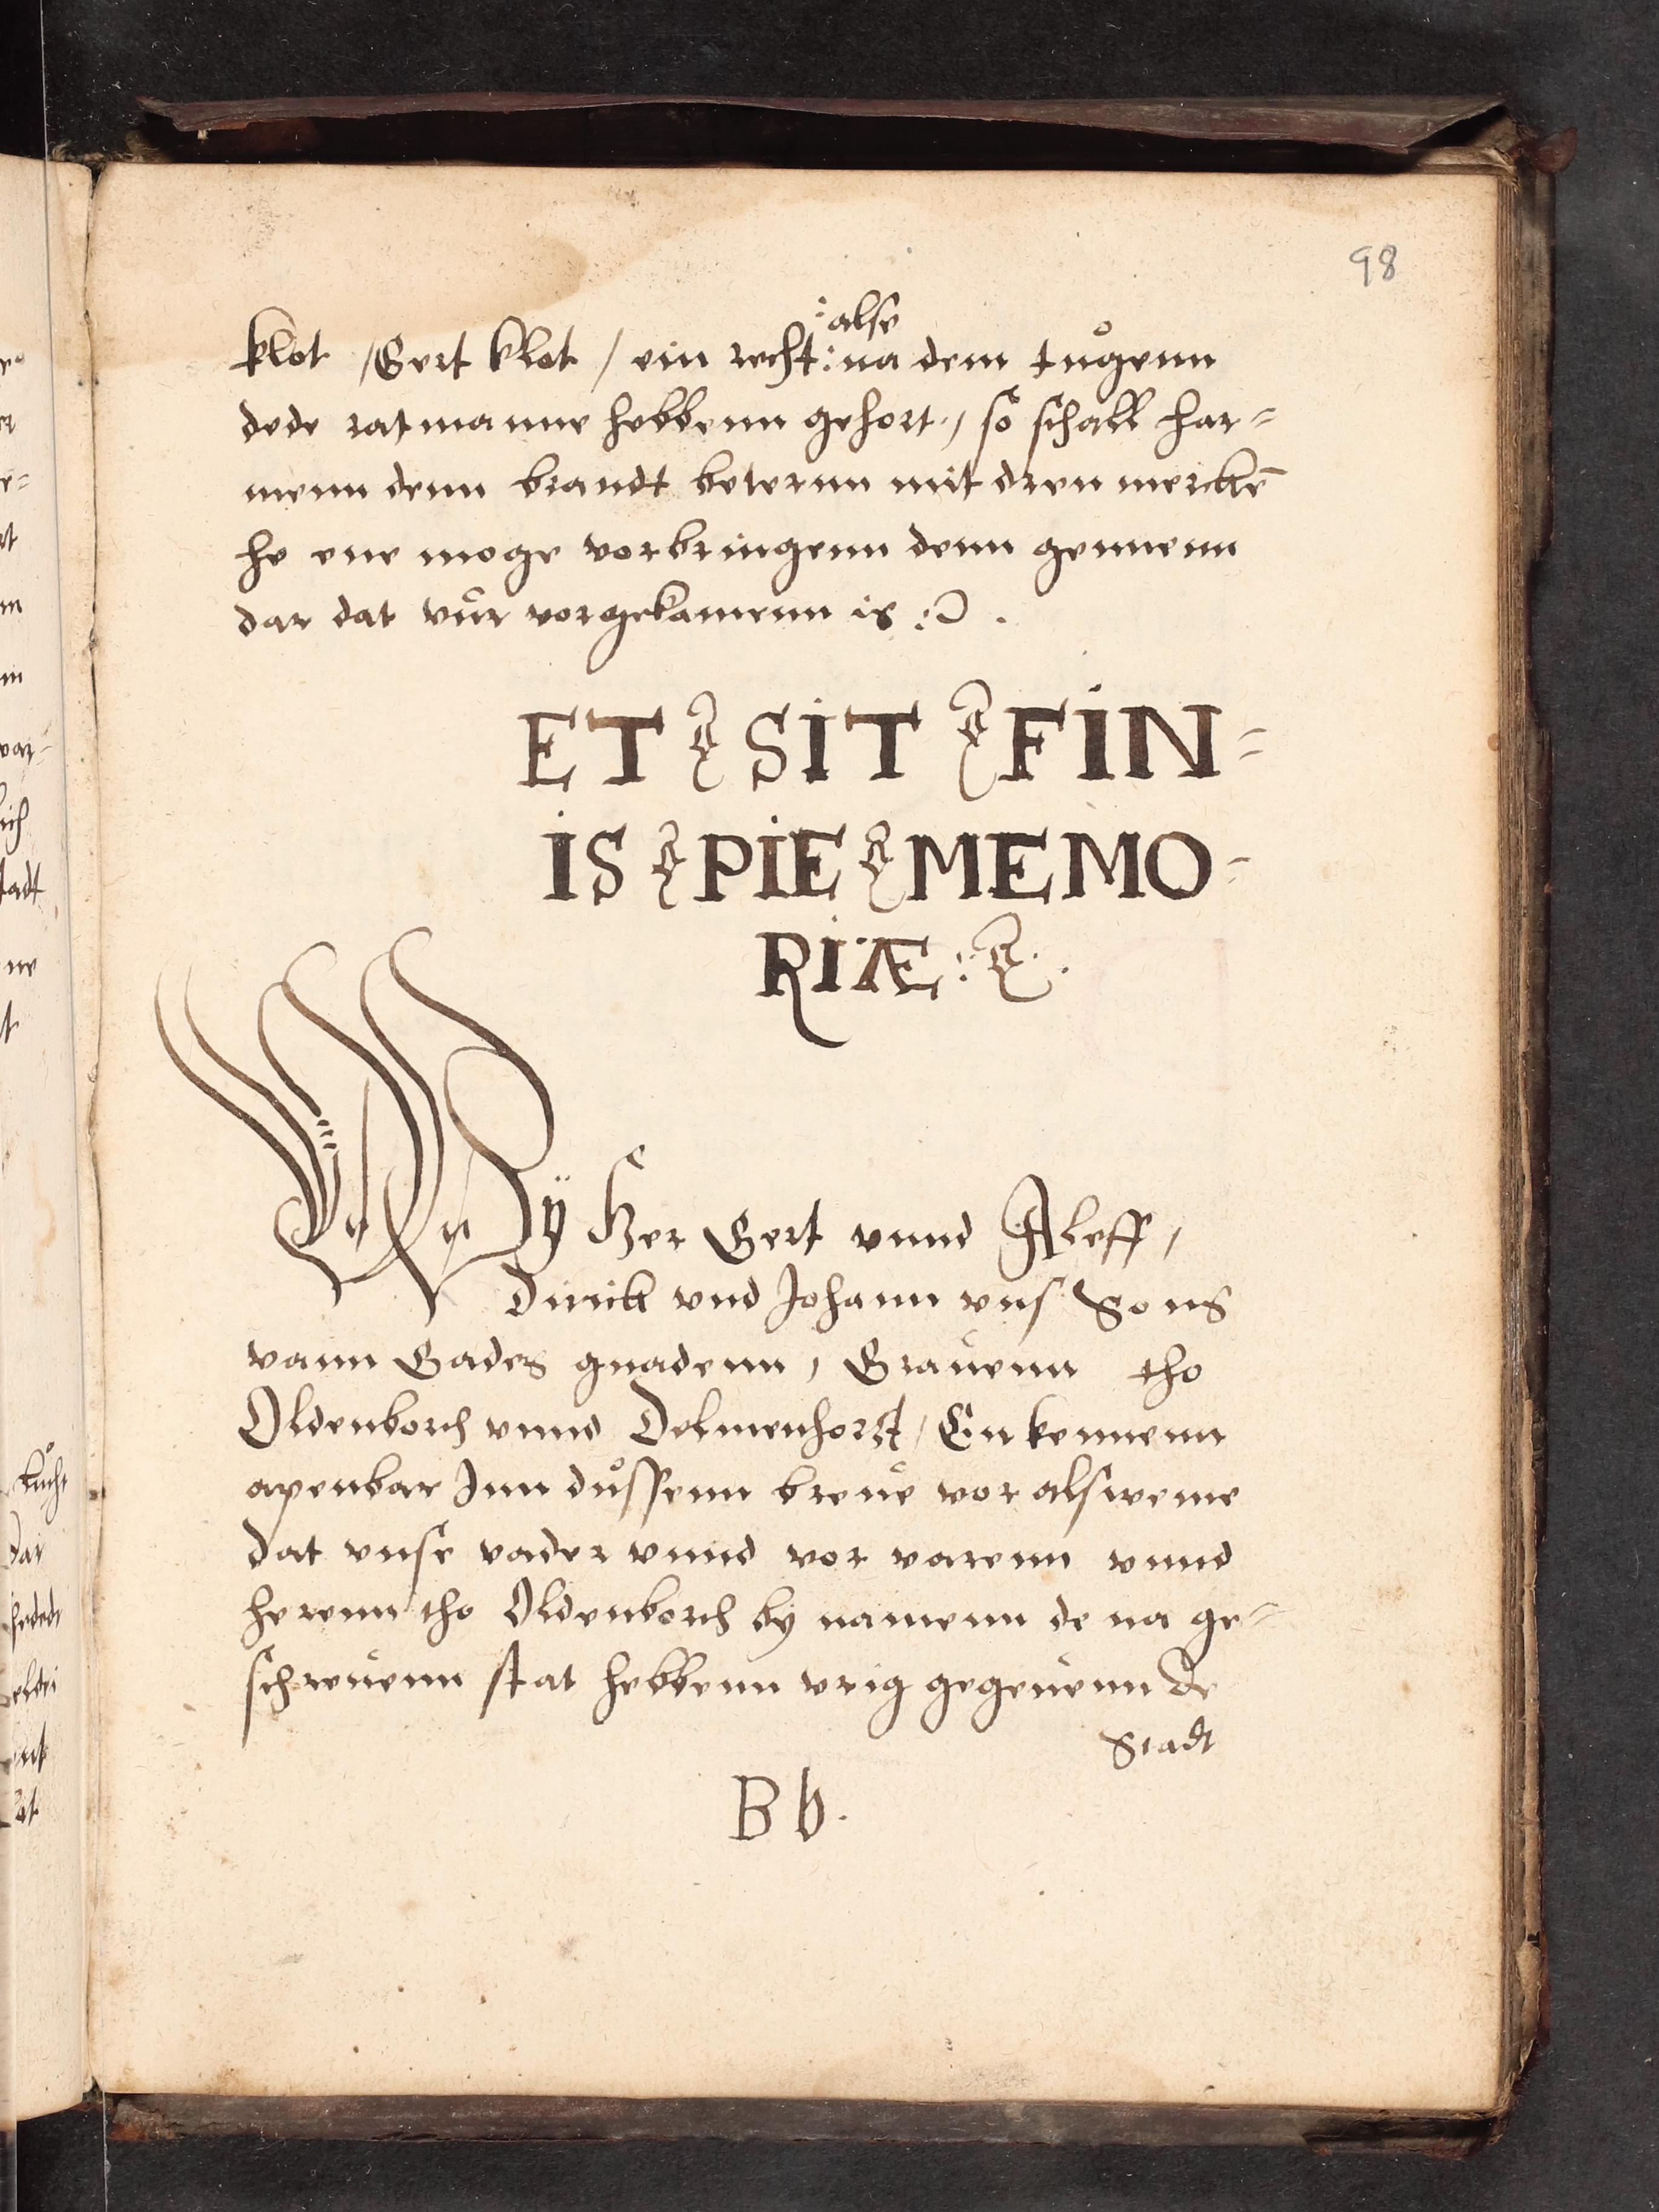 98
:alse
klot / Gert klot / ein recht: na dem tůgenn
dede ratmanne hebbenn gehort, / so schall har=
menn denn brandt beternn mit dren mercke̅
he ene moge vorbringenn denn gennenn
dar dat vůr vorgekamenn is :
ET SIT FIN=
IS PIE MEMO=
RIÆ :
Wÿ Her Gert vnnd Aleff,
Dirick vnd Johann vns Sons
vann Gades gnadenn, Grauenn tho
Oldenborch vnnd Delmenhorst, Enkennenn
apenbar Inn důssenn breue vor alsweme
dat vnse vader vnnd vor varenn vnnd
herenn tho Oldenborch by namenn de na ge=
schreuenn stat hebbenn vrig gegeuenn de
Stadt
B b.